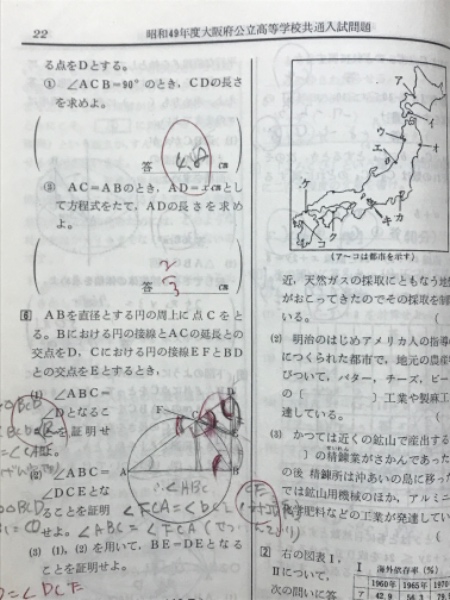 22 昭和49年度大阪府公立高等学校共通入試問題
る点をDとする。
① ∠ACB=90° のとき，CDの長さ
を求めよ。
答 4.8 cm
② AC=ABのとき，AD=xcmとし
て方程式をたて，ADの長さを求め
よ。
答 2/3 cm
6 ABを直径とする円の周上に点Cをと
る。Bにおける円の接線とACの延長との
交点をD，Cにおける円の接線EFとBD
との交点をEとするとき，
(1) ∠ABC=
∠Dとなるこ
とを証明せ
(2) ∠ABC=
∠DCEとな
ることを証明
せよ。
(3) (1)，(2)を用いて，BE=DEとなる
ことを証明せよ。
F
C
D
E
A
B
∠FCA=
∠ABC=∠FCA
ア
イ
ウ
エ
オ
カ
キ
ク
ケ
コ
(ア～コは都市を示す)
近，天然ガスの採取にともなう地
がおこってきたのでその採取を制
いる。 (
(2) 明治のはじめアメリカ人の指導
につくられた都市で，地元の農産
びついて，バター，チーズ，ビー
の〔 〕工業や製麻工
達している。 (
(3) かつては近くの鉱山で産出する
〔 〕の精錬業がさかんであった
の後 精錬所は沖あいの島に移った
では鉱山用機械のほか，アルミニ
化学肥料などの工業が発達してい
(
2 右の図表Ⅰ，
Ⅱについて，
次の問いに答
Ⅰ 海外依存率(%)
1960年 1965年 1970
ア 42.9 56.3 79.